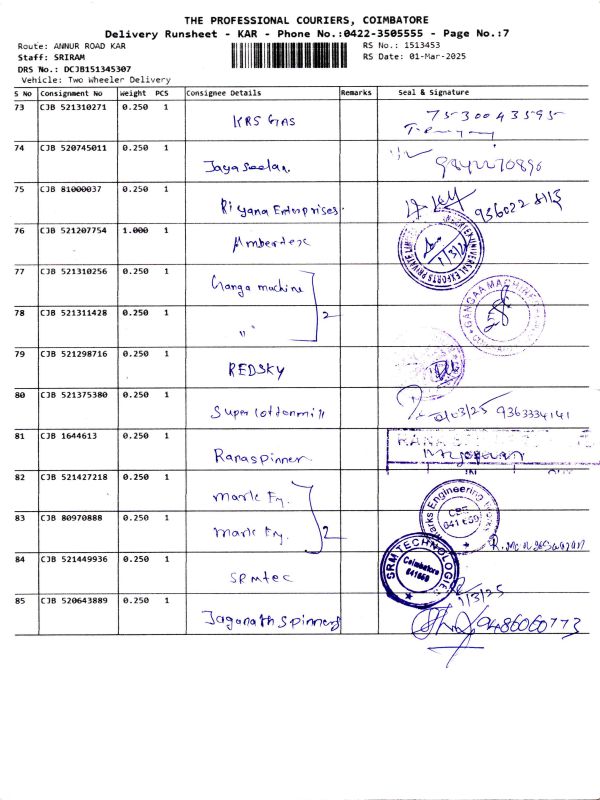 THE PROFESSIONAL COURIERS, COIMBATORE
Delivery Runsheet - KAR - Phone No.:0422-3505555 - Page No.:7
Route: ANNUR ROAD KAR
RS No.: 1513453
Staff: SRIRAM
RS Date: 01-Mar-2025
DRS No.: DCJB151345307
Vehicle: Two Wheeler Delivery
S No Consignment No Weight PCS Consignee Details Remarks Seal & Signature
73 CJB 521310271 0.250 1 KRS GAS 7530043595
74 CJB 520745011 0.250 1 Jayaseelan. 9842270896
75 CJB 81000037 0.250 1 Riyana Enterprises. 936022 8113
76 CJB 521207754 1.000 1 Ambertex 1/3/25
77 CJB 521310256 0.250 1 Ganga machine 2 GANGAA MACHINE
78 CJB 521311428 0.250 1 "
79 CJB 521298716 0.250 1 REDSKY
80 CJB 521375380 0.250 1 Super Cottonmill 01/03/25 9363334141
81 CJB 1644613 0.250 1 Ranaspinner RANA
82 CJB 521427218 0.250 1 mark Eng. 2 Marks Engineering Works
CBE
83 CJB 80970888 0.250 1 mark Eng.
84 CJB 521449936 0.250 1 SRMtec SRM TECHNOLOGIE
Coimbatore
641659
1/3/25
85 CJB 520643889 0.250 1 Jaganath Spinners 9486060773